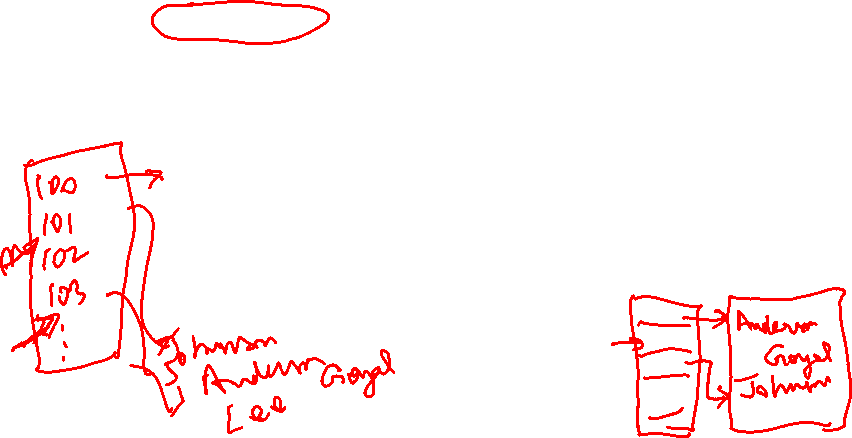 100
101
102
103
Johnson
Anderson Goyal
Lee
Anderson
Goyal
Johnson